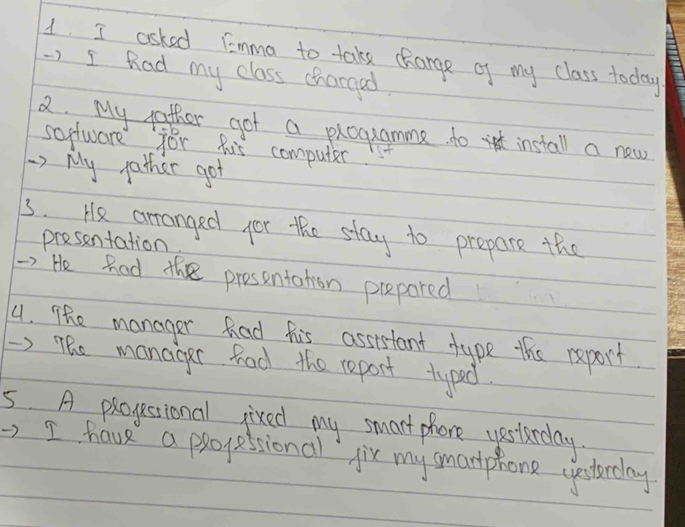 1. I asked Emma to take charge of my class today.
-> I had my class charged.
2. My father got a programme to install a new
software for his computer.
-> My father got
3. He arranged for the stay to prepare the
presentation.
-> He had the presentation prepared
4. The manager had his assistant type the report.
-> The manager had the report typed.
5 A professional fixed my smart phone yesterday.
-> I have a professional fix my smartphone yesterday.